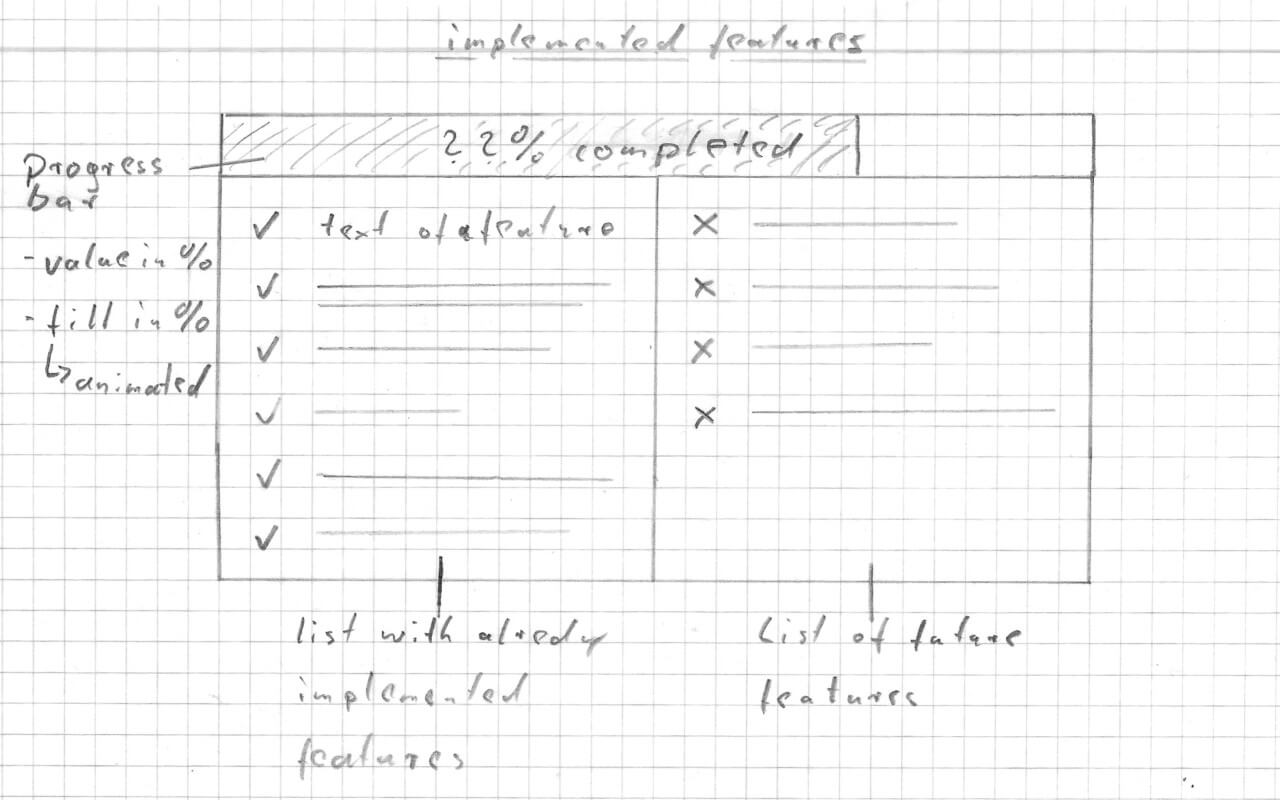 implemented features
? ?% completed
Progress
bar
- value in %
- fill in %
↳ animated
✓ text of a feature
✓
✓
✓
✓
✓
×
×
×
×
list with alredy
implemented
features
List of future
features